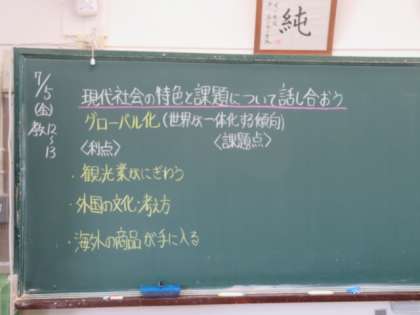 純
7/5
(金)
教12
～
13
現代社会の特色と課題について話し合おう
グローバル化(世界が一体化する傾向)
〈利点〉 〈課題点〉
・観光業がにぎわう
・外国の文化・考え方
・海外の商品が手に入る